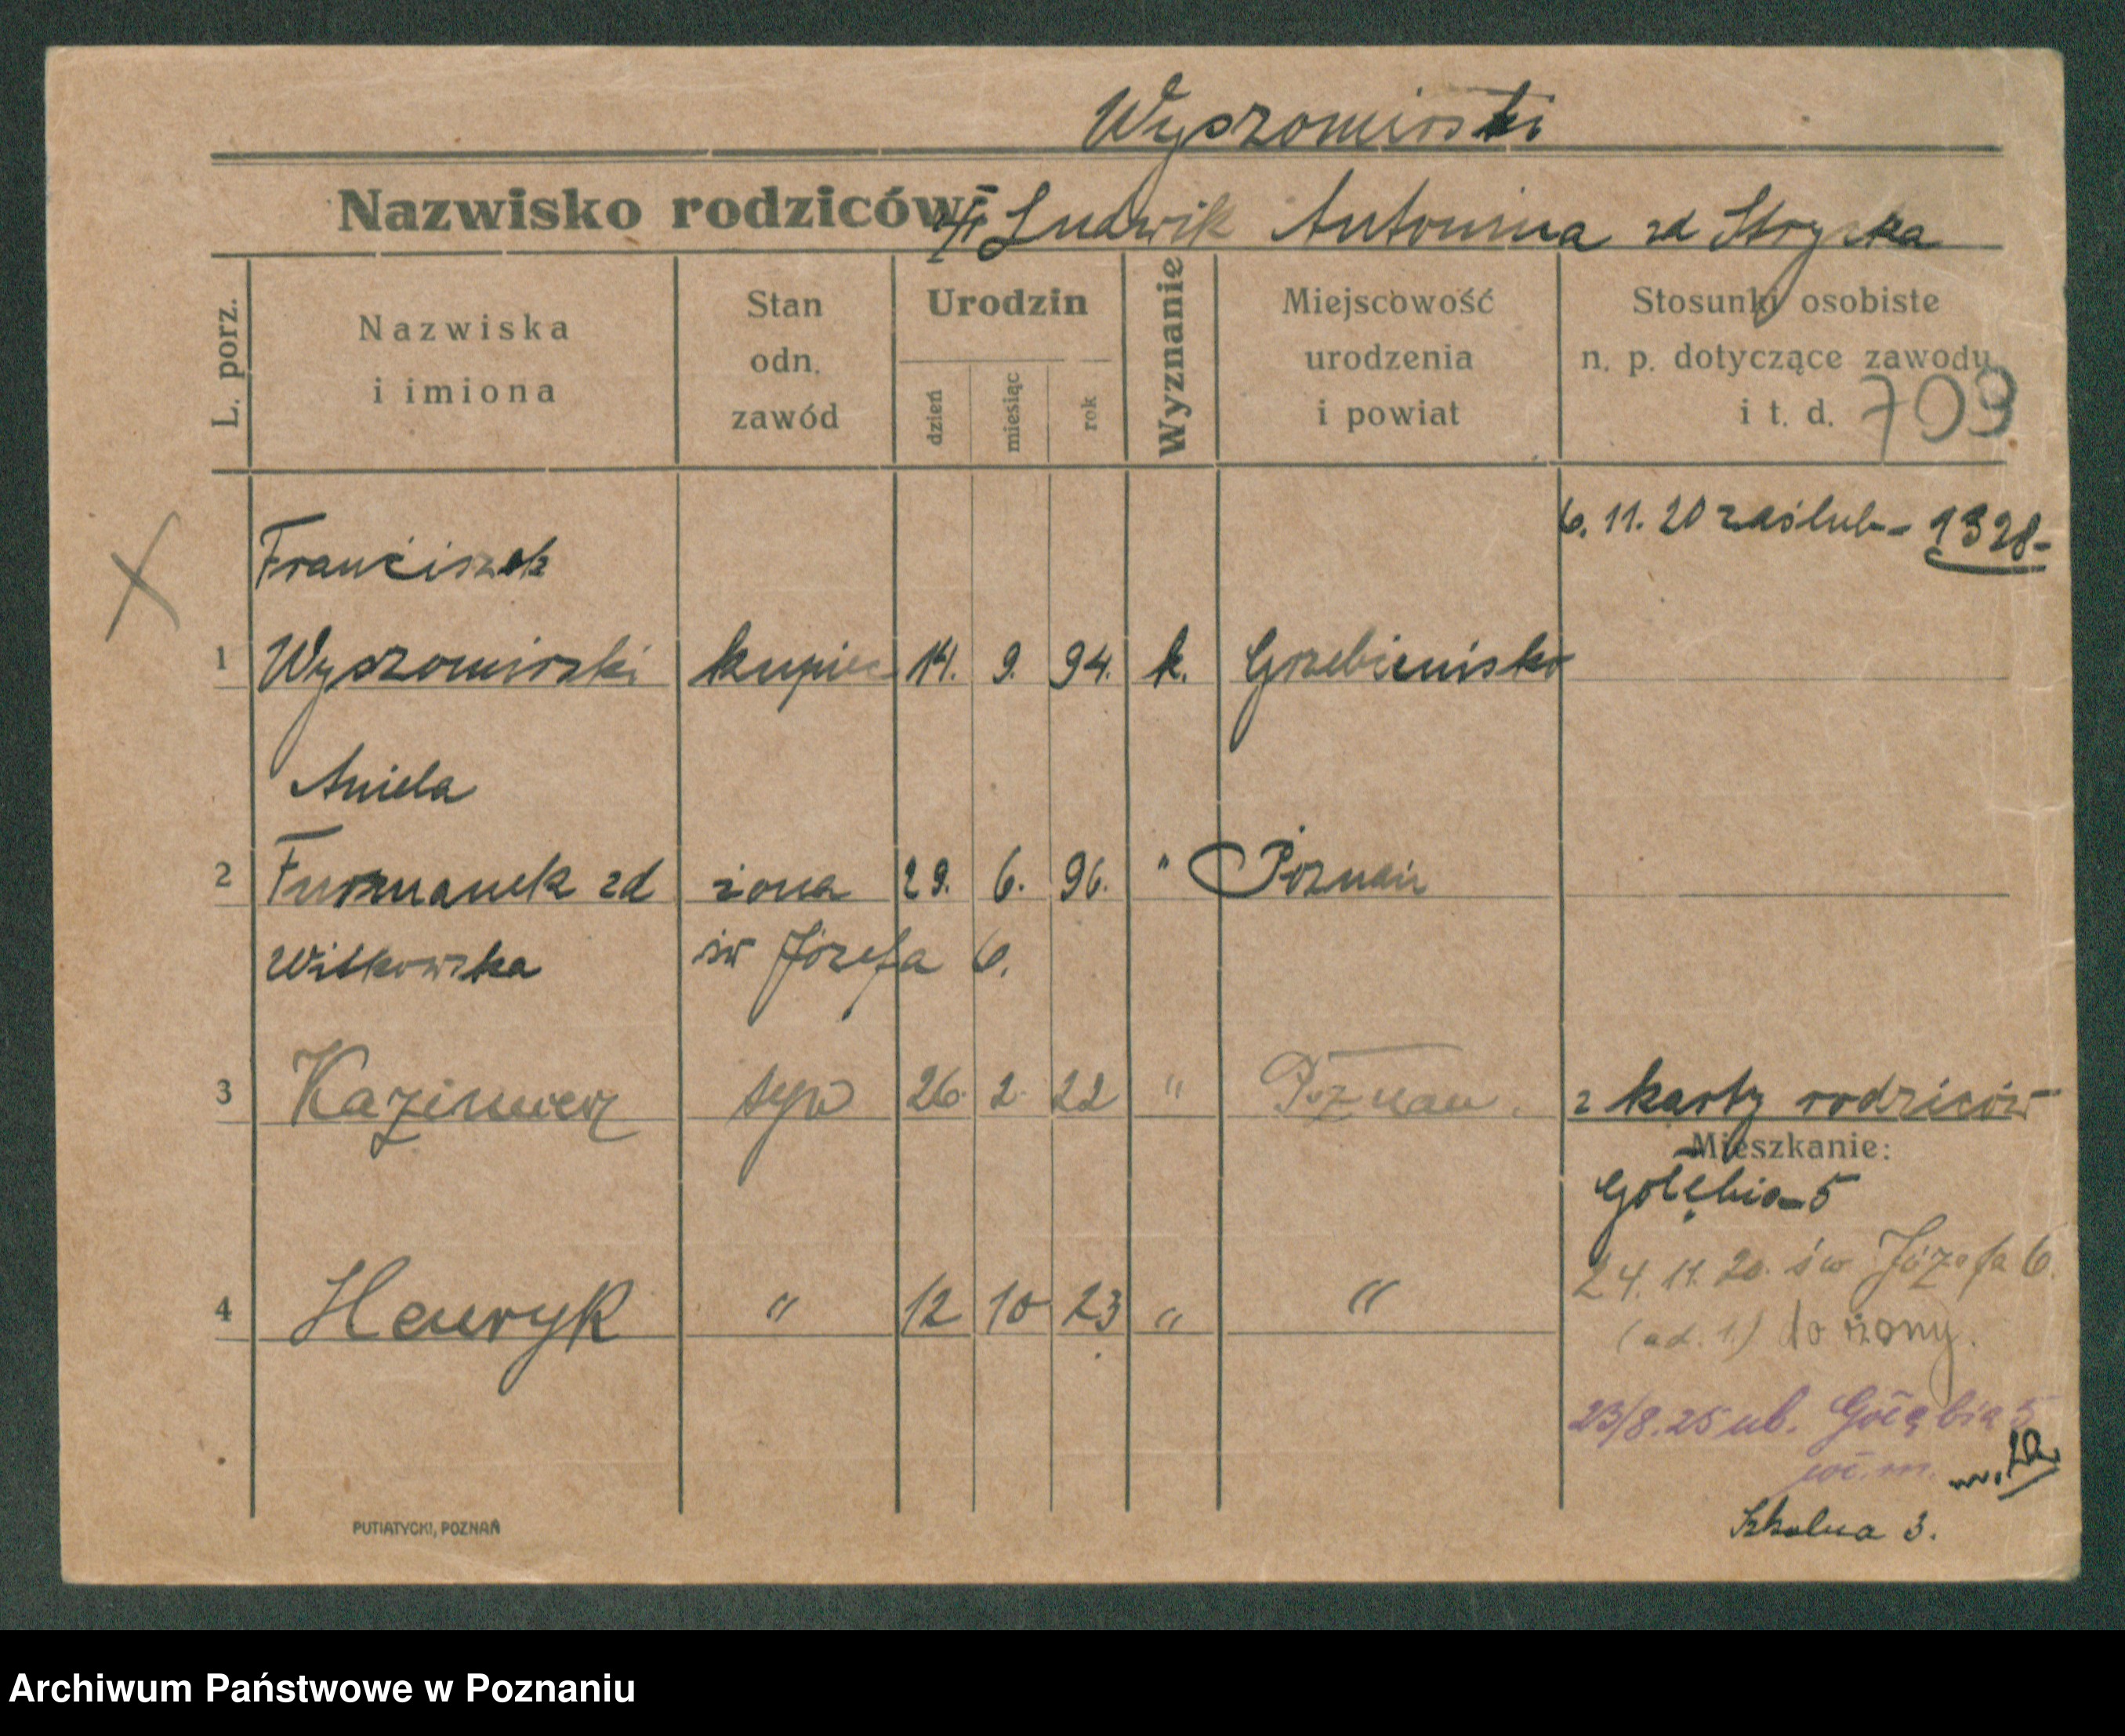 Wyszomirski
Nazwisko rodziców: Ludwik Antonina zd Stryska
L. porz.
Nazwiska
i imiona
Stan
odn.
zawód
Urodzin
dzień
miesiąc
rok
Wyznanie
Miejscowość
urodzenia
i powiat
Stosunki osobiste
n. p. dotyczące zawodu
i t. d. 709
6. 11. 20 zaślub - 1328 -
Franciszek
1 Wyszomirski kupiec 14. 9. 94. k. Grzebienisko
Aniela
2 Furmanek zd żona 29. 6. 96. " Poznań
Witkowska św Józefa 6.
3 Kazimierz syn 26. 2. 22 " Poznań. z karty rodziców
Mieszkanie:
Gołębia 5
24. 11. 20. św Józefa 6.
4 Henryk " 12 10 23 " "
(ad. 1.) do żony.
23/8. 25 ub. Gołębia 5
Szkolna 3.
PUTIATYCKI, POZNAŃ
Archiwum Państwowe w Poznaniu